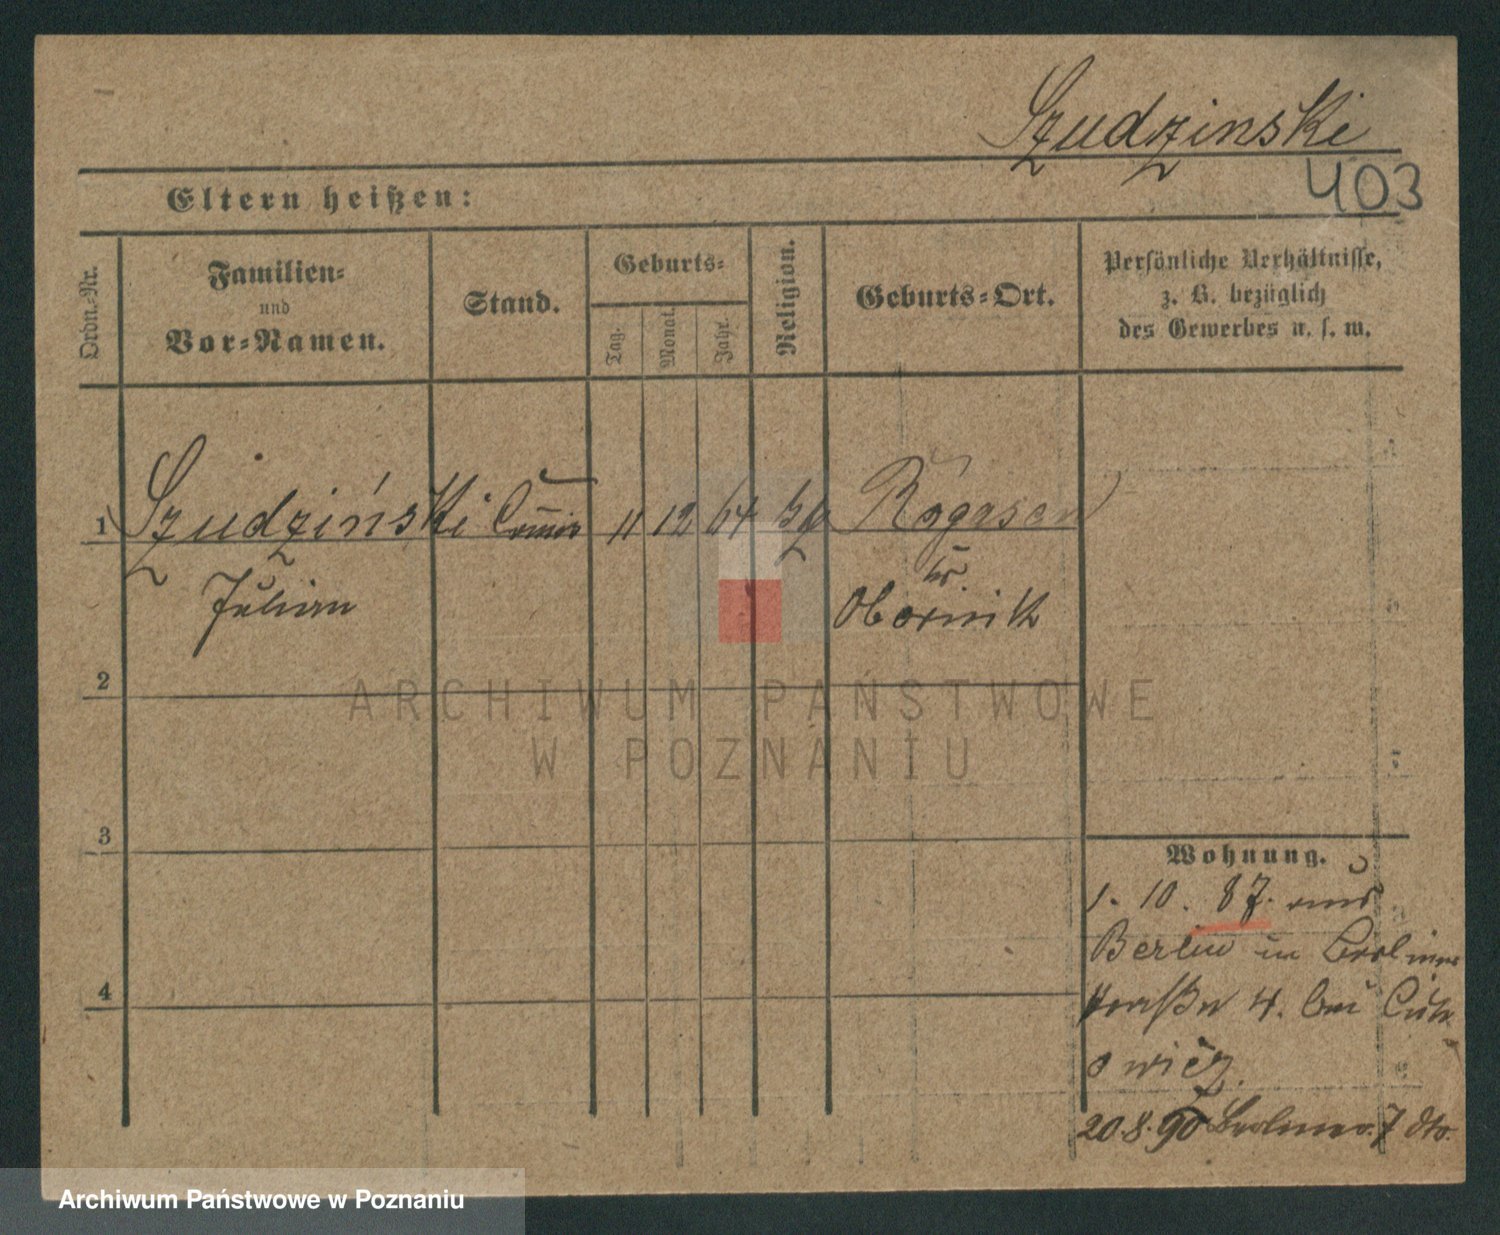 Szudzinski
403
Eltern heißen:
Ordn.-Nr.
Familien-
und
Vor-Namen.
Stand.
Geburts-
Tag.
Monat.
Jahr.
Religion.
Geburts-Ort.
Persönliche Verhältnisse,
z. B. bezüglich
des Gewerbes u. s. w.
1 Szudziński 11 12 64 Rogasen
Julian
Obornik
2
3
4
Wohnung.
1. 10. 87. aus
Berlin in Berliner
straße 4. bei
owicz.
20.8.90 Berliner. 7 dto.
ARCHIWUM PAŃSTWOWE
W POZNANIU
Archiwum Państwowe w Poznaniu